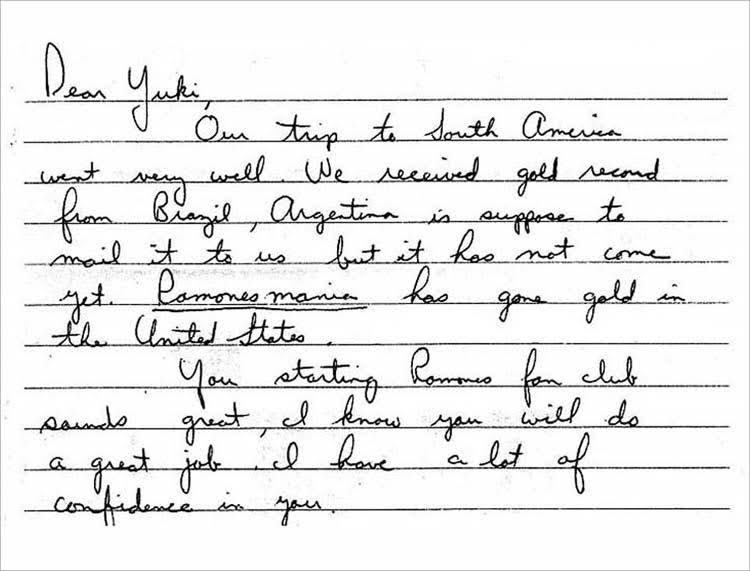 Dear Yuki,
Our trip to South America
went very well. We received gold record
from Brazil, Argentina is suppose to
mail it to us but it has not come
yet. Ramonesmania has gone gold in
the United States.
You starting Ramones fan club
sounds great, I know you will do
a great job. I have a lot of
confidence in you.